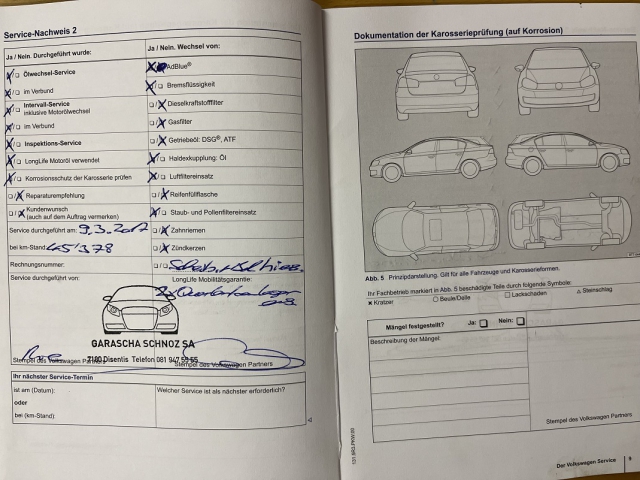 Service-Nachweis 2
Ja / Nein. Durchgeführt wurde:
Ölwechsel-Service
im Verbund
Intervall-Service
inklusive Motorölwechsel
im Verbund
Inspektions-Service
LongLife Motoröl verwendet
Korrosionsschutz der Karosserie prüfen
Reparaturempfehlung
Kundenwunsch
(auch auf dem Auftrag vermerken)
Service durchgeführt am: 9.3.2017
bei km-Stand: 45'378
Rechnungsnummer:
Service durchgeführt von:
Ja / Nein. Wechsel von:
AdBlue®
Bremsflüssigkeit
Dieselkraftstofffilter
Gasfilter
Getriebeöl: DSG®, ATF
Haldexkupplung: Öl
Luftfiltereinsatz
Reifenfüllflasche
Staub- und Pollenfiltereinsatz
Zahnriemen
Zündkerzen
LongLife Mobilitätsgarantie:
GARASCHA SCHNOZ SA
7180 Disentis Telefon 081 947 55 55
Stempel des Volkswagen Partners
Stempel des Volkswagen Partners
Ihr nächster Service-Termin
ist am (Datum):
oder
bei (km-Stand):
Welcher Service ist als nächster erforderlich?
Dokumentation der Karosserieprüfung (auf Korrosion)
Abb. 5 Prinzipdarstellung. Gilt für alle Fahrzeuge und Karosserieformen.
Ihr Fachbetrieb markiert in Abb. 5 beschädigte Teile durch folgende Symbole:
× Kratzer ○ Beule/Delle □ Lackschaden △ Steinschlag
Mängel festgestellt? Ja: Nein:
Beschreibung der Mängel:
Stempel des Volkswagen Partners
Der Volkswagen Service 9